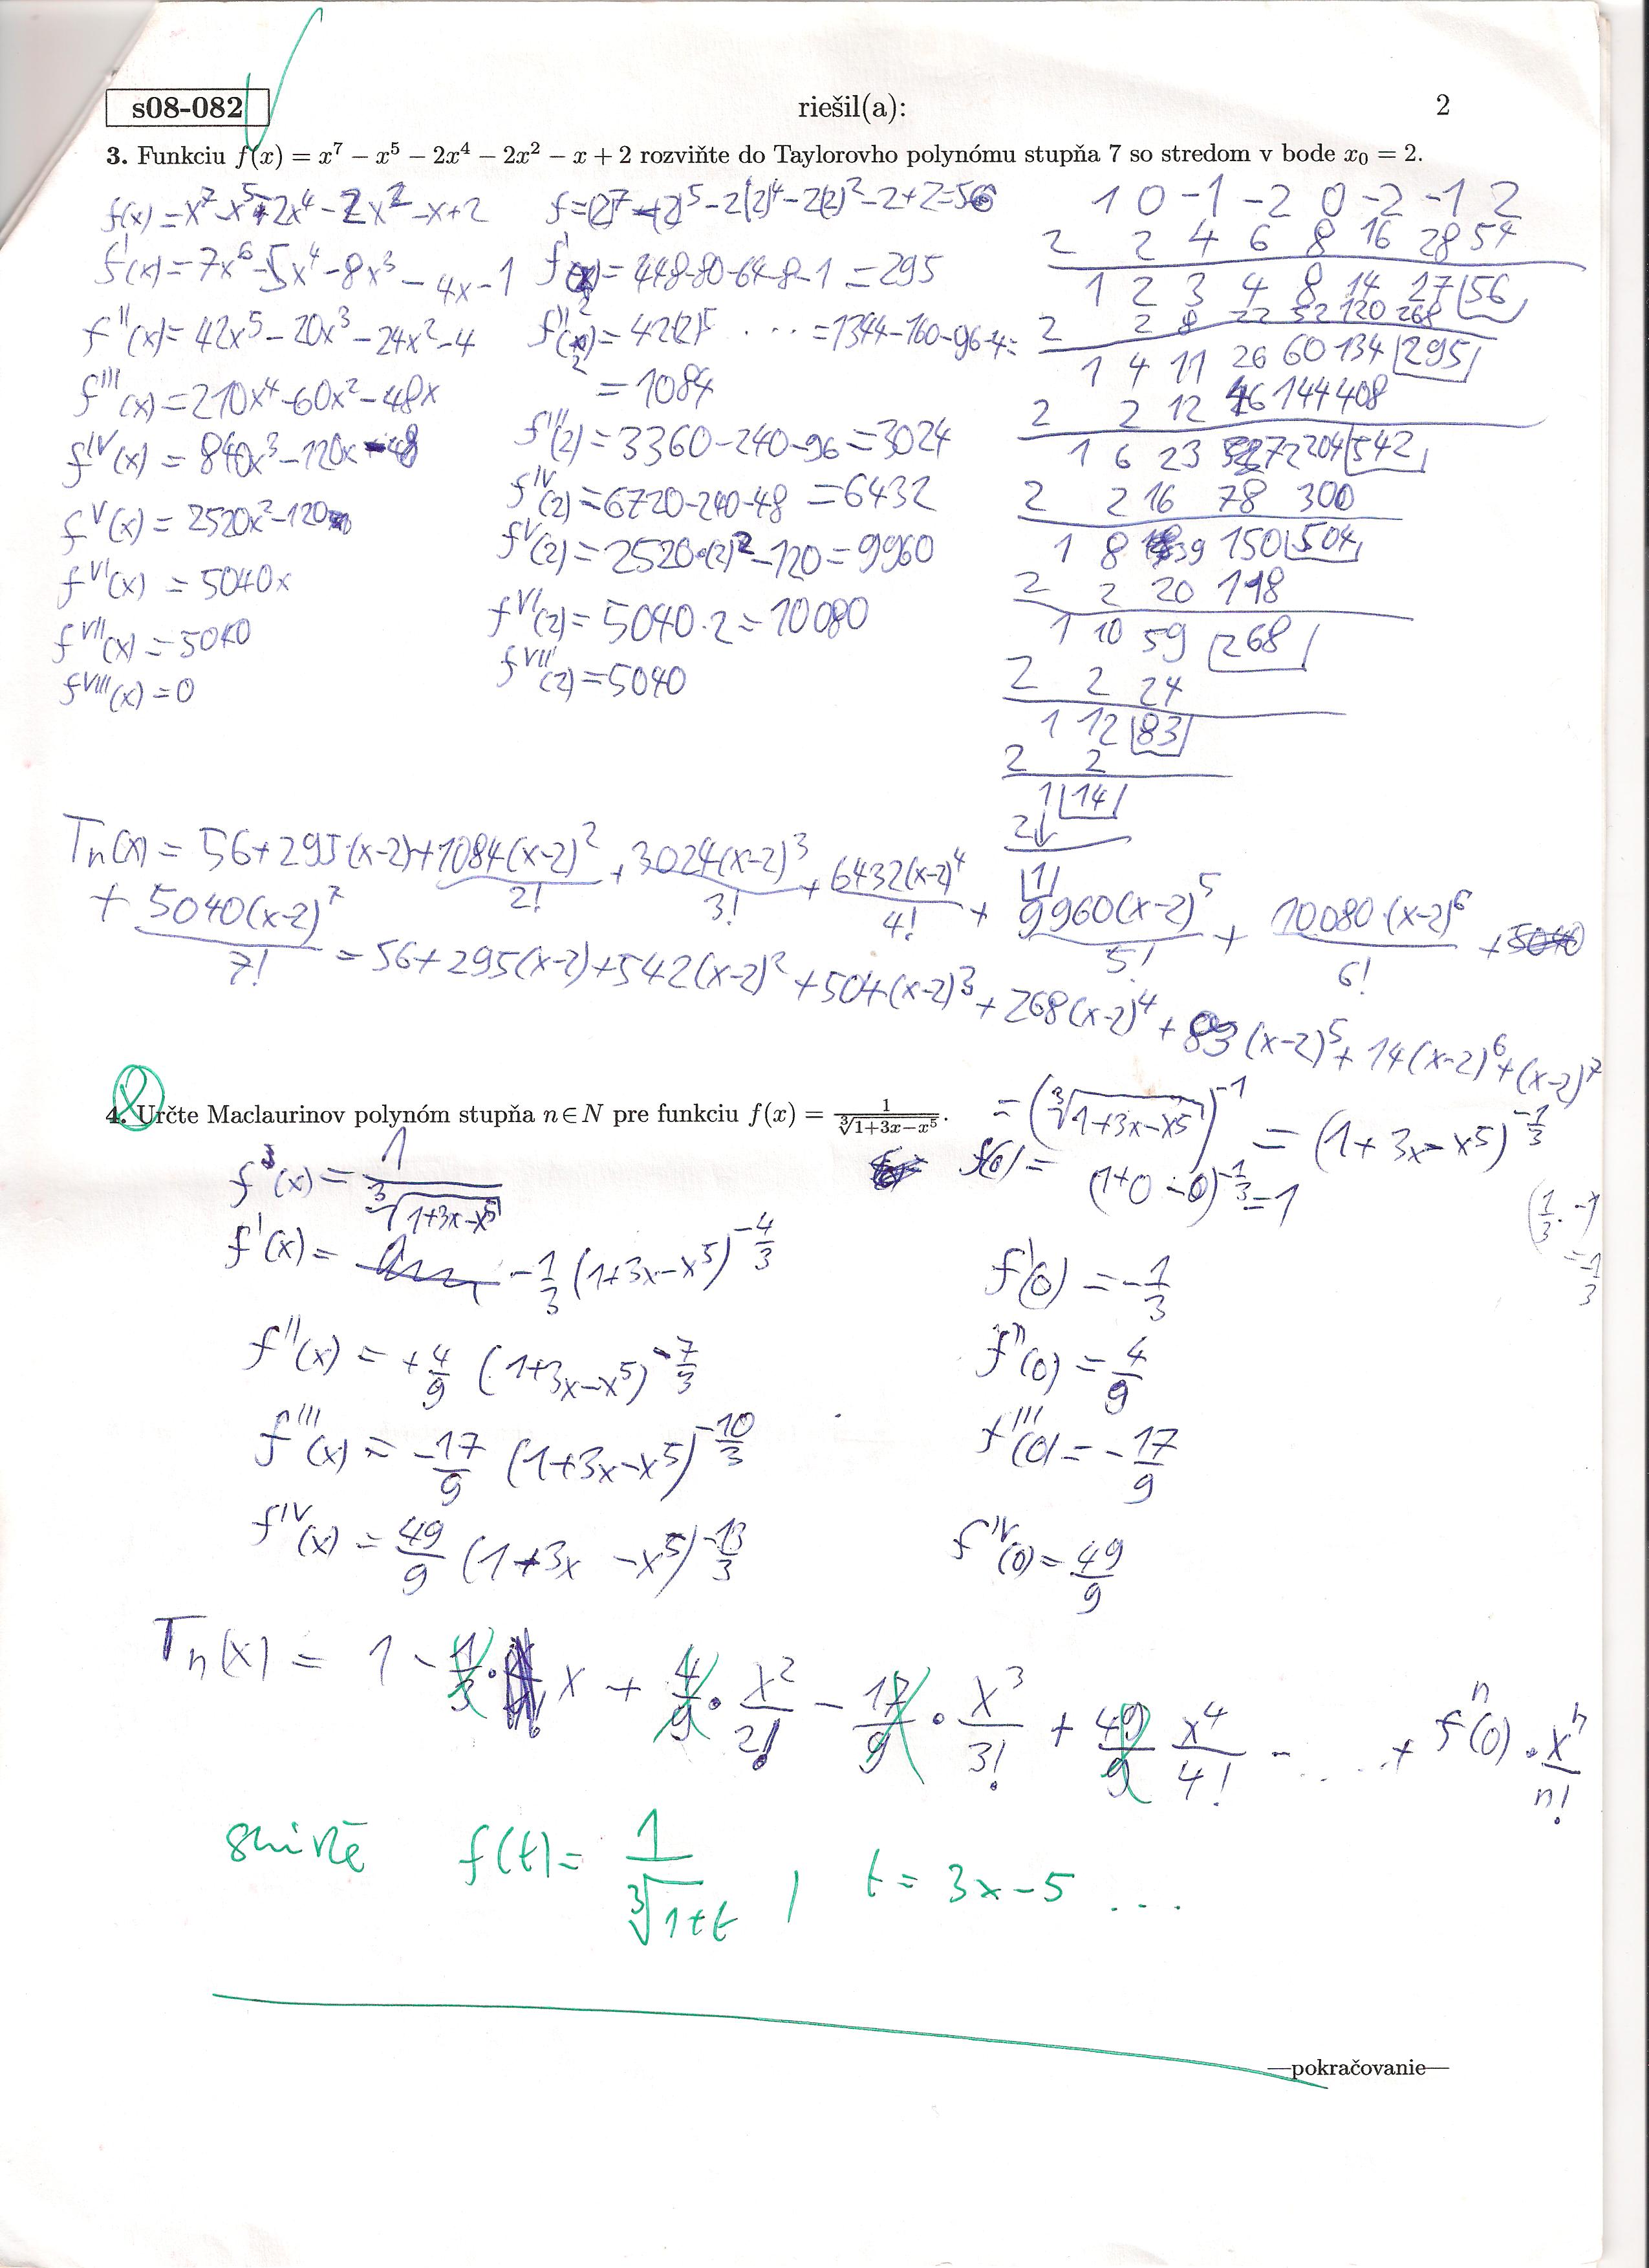 s08-082 riešil(a): 2
3. Funkciu f(x) = x⁷ − x⁵ − 2x⁴ − 2x² − x + 2 rozviňte do Taylorovho polynómu stupňa 7 so stredom v bode x₀ = 2.
f(x) = x⁷ - x⁵ - 2x⁴ - 2x² - x + 2
f'(x) = 7x⁶ - 5x⁴ - 8x³ - 4x - 1
f''(x) = 42x⁵ - 20x³ - 24x² - 4
f'''(x) = 210x⁴ - 60x² - 48x
f^IV(x) = 840x³ - 120x - 48
f^V(x) = 2520x² - 120
f^VI(x) = 5040x
f^VII(x) = 5040
f^VIII(x) = 0
f = (2)⁷ - (2)⁵ - 2(2)⁴ - 2(2)² - 2 + 2 = 56
f'(2) = 448 - 80 - 64 - 8 - 1 = 295
f''(2) = 42(2)⁵ ... = 1344 - 160 - 96 - 4 =
= 1084
f'''(2) = 3360 - 240 - 96 = 3024
f^IV(2) = 6720 - 240 - 48 = 6432
f^V(2) = 2520·(2)² - 120 = 9960
f^VI(2) = 5040·2 = 10080
f^VII(2) = 5040
1 0 -1 -2 0 -2 -1 2
2 2 4 6 8 16 28 54
1 2 3 4 8 14 27 56
2 2 8 22 52 120 268
1 4 11 26 60 134 295
2 2 12 46 144 408
1 6 23 72 204 542
2 2 16 78 300
1 8 39 150 504
2 2 20 118
1 10 59 268
2 2 24
1 12 83
2 2
1 14
2↓
1
Tn(x) = 56 + 295(x-2) + 1084(x-2)²/2! + 3024(x-2)³/3! + 6432(x-2)⁴/4! + 9960(x-2)⁵/5! + 10080·(x-2)⁶/6! +
+ 5040(x-2)⁷/7! = 56 + 295(x-2) + 542(x-2)² + 504(x-2)³ + 268(x-2)⁴ + 83(x-2)⁵ + 14(x-2)⁶ + (x-2)⁷
4. Určte Maclaurinov polynóm stupňa n∈N pre funkciu f(x) = 1/∛(1+3x−x⁵). = (∛(1+3x-x⁵))⁻¹ = (1+3x-x⁵)^(-1/3)
f(x) = 1/∛(1+3x-x⁵)
f(0) = (1+0-0)^(-1/3) = 1
(1/3 · -1
= -1/3
f'(x) = -1/3 (1+3x-x⁵)^(-4/3) f'(0) = -1/3
f''(x) = +4/9 (1+3x-x⁵)^(-7/3) f''(0) = 4/9
f'''(x) = -17/9 (1+3x-x⁵)^(-10/3) f'''(0) = -17/9
f^IV(x) = 49/9 (1+3x -x⁵)^(-13/3) f^IV(0) = 49/9
Tn(x) = 1 - 1/3 · x + 4/9 · x²/2! - 17/9 · x³/3! + 49/9 x⁴/4! - .... + fⁿ(0) · xⁿ/n!
f(t) = 1/∛(1+t) , t = 3x-5 ...
—pokračovanie—